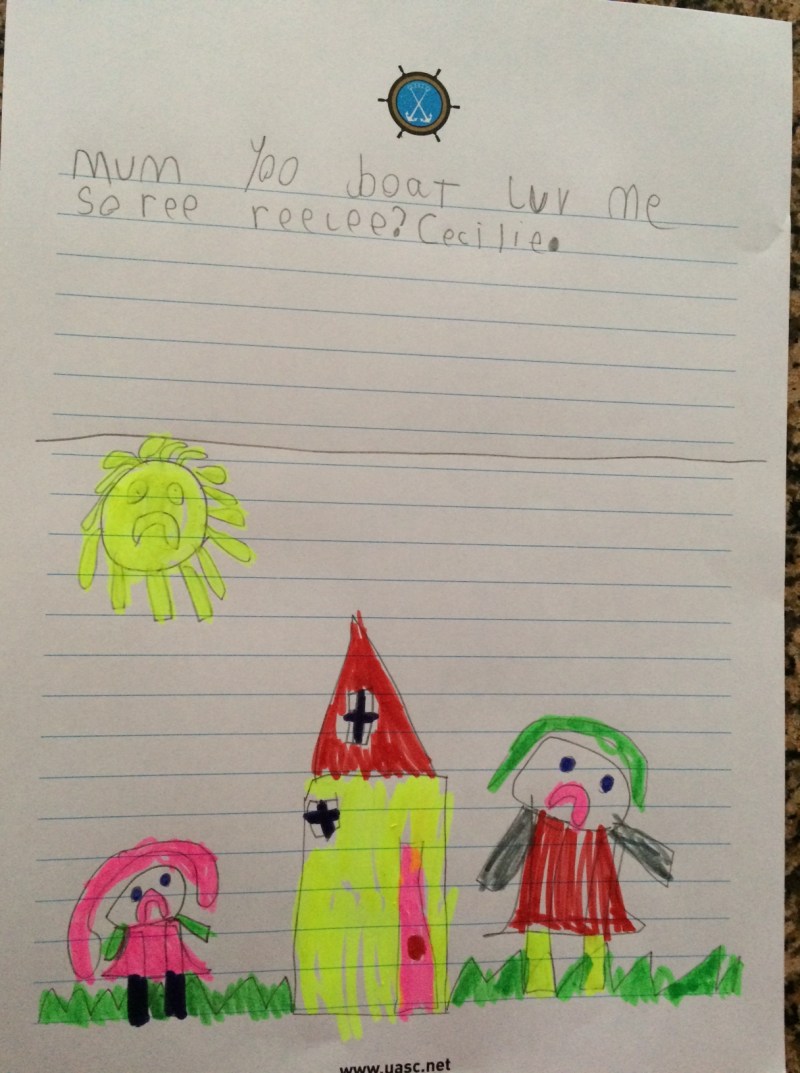 mum Yoo boat luv me
so ree reelee? Cecilie.
www.uasc.net